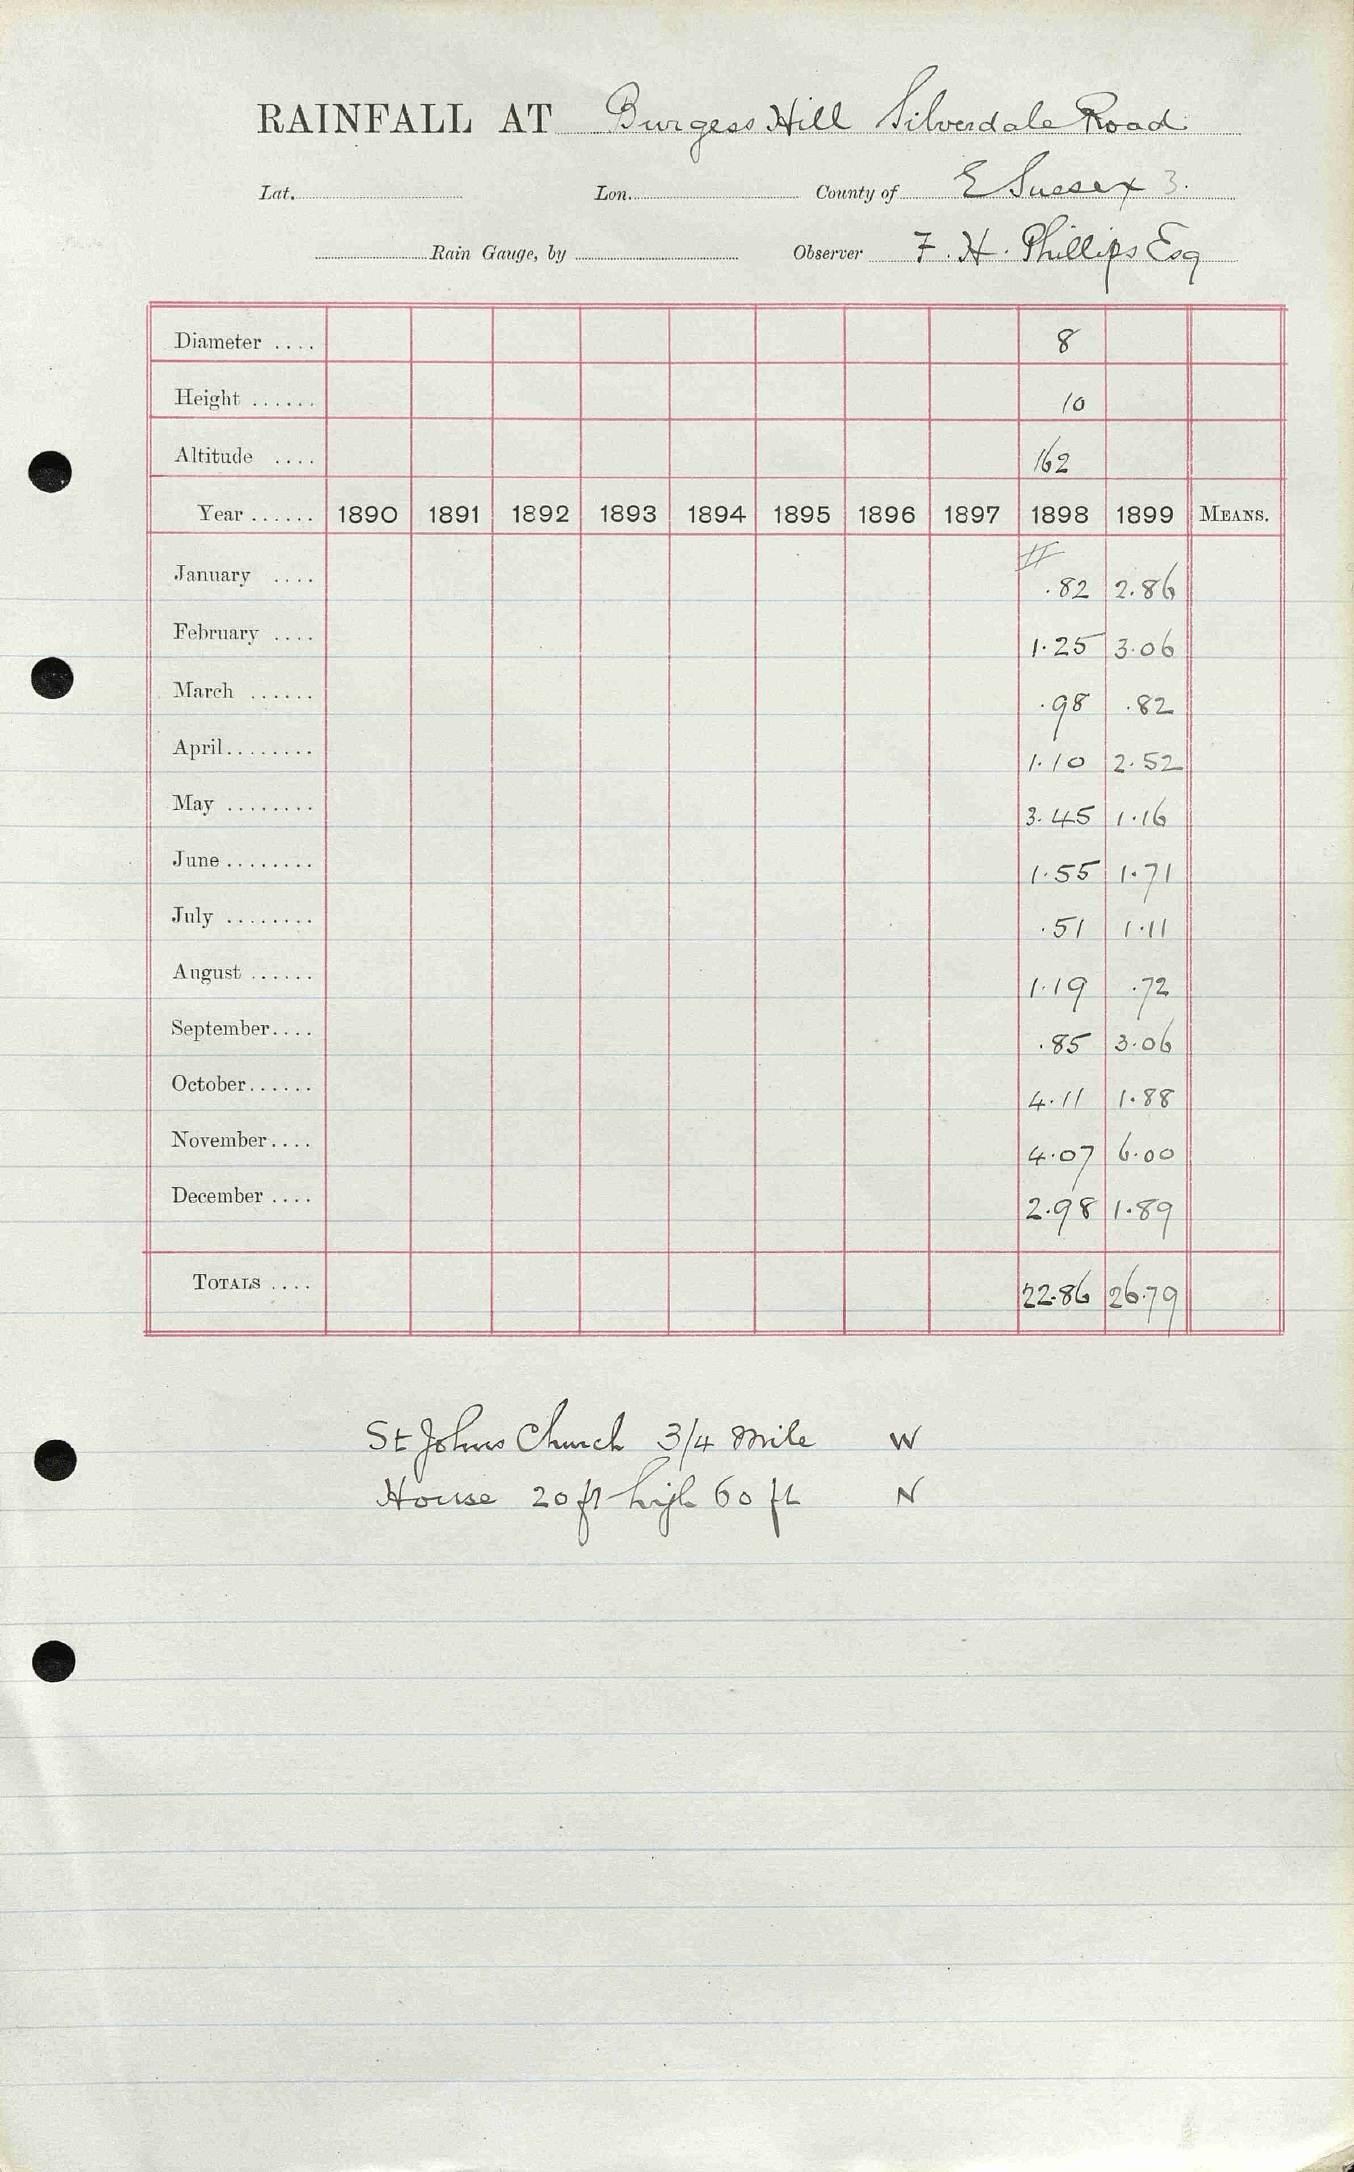 RAINFALL AT Burgess Hill Silverdale Road
Lat. Lon. County of E Sussex 3.
Rain Gauge, by Observer F. H. Phillips Esq
Diameter .... 8
Height ...... 10
Altitude .... 162
Year ...... 1890 1891 1892 1893 1894 1895 1896 1897 1898 1899 MEANS.
January .... .82 2.86
February .... 1.25 3.06
March ...... .98 .82
April........ 1.10 2.52
May ........ 3.45 1.16
June ........ 1.55 1.71
July ........ .51 1.11
August ...... 1.19 .72
September.... .85 3.06
October...... 4.11 1.88
November.... 4.07 6.00
December .... 2.98 1.89
TOTALS .... 22.86 26.79
St Johns Church 3/4 mile W
House 20 ft high 60 ft N